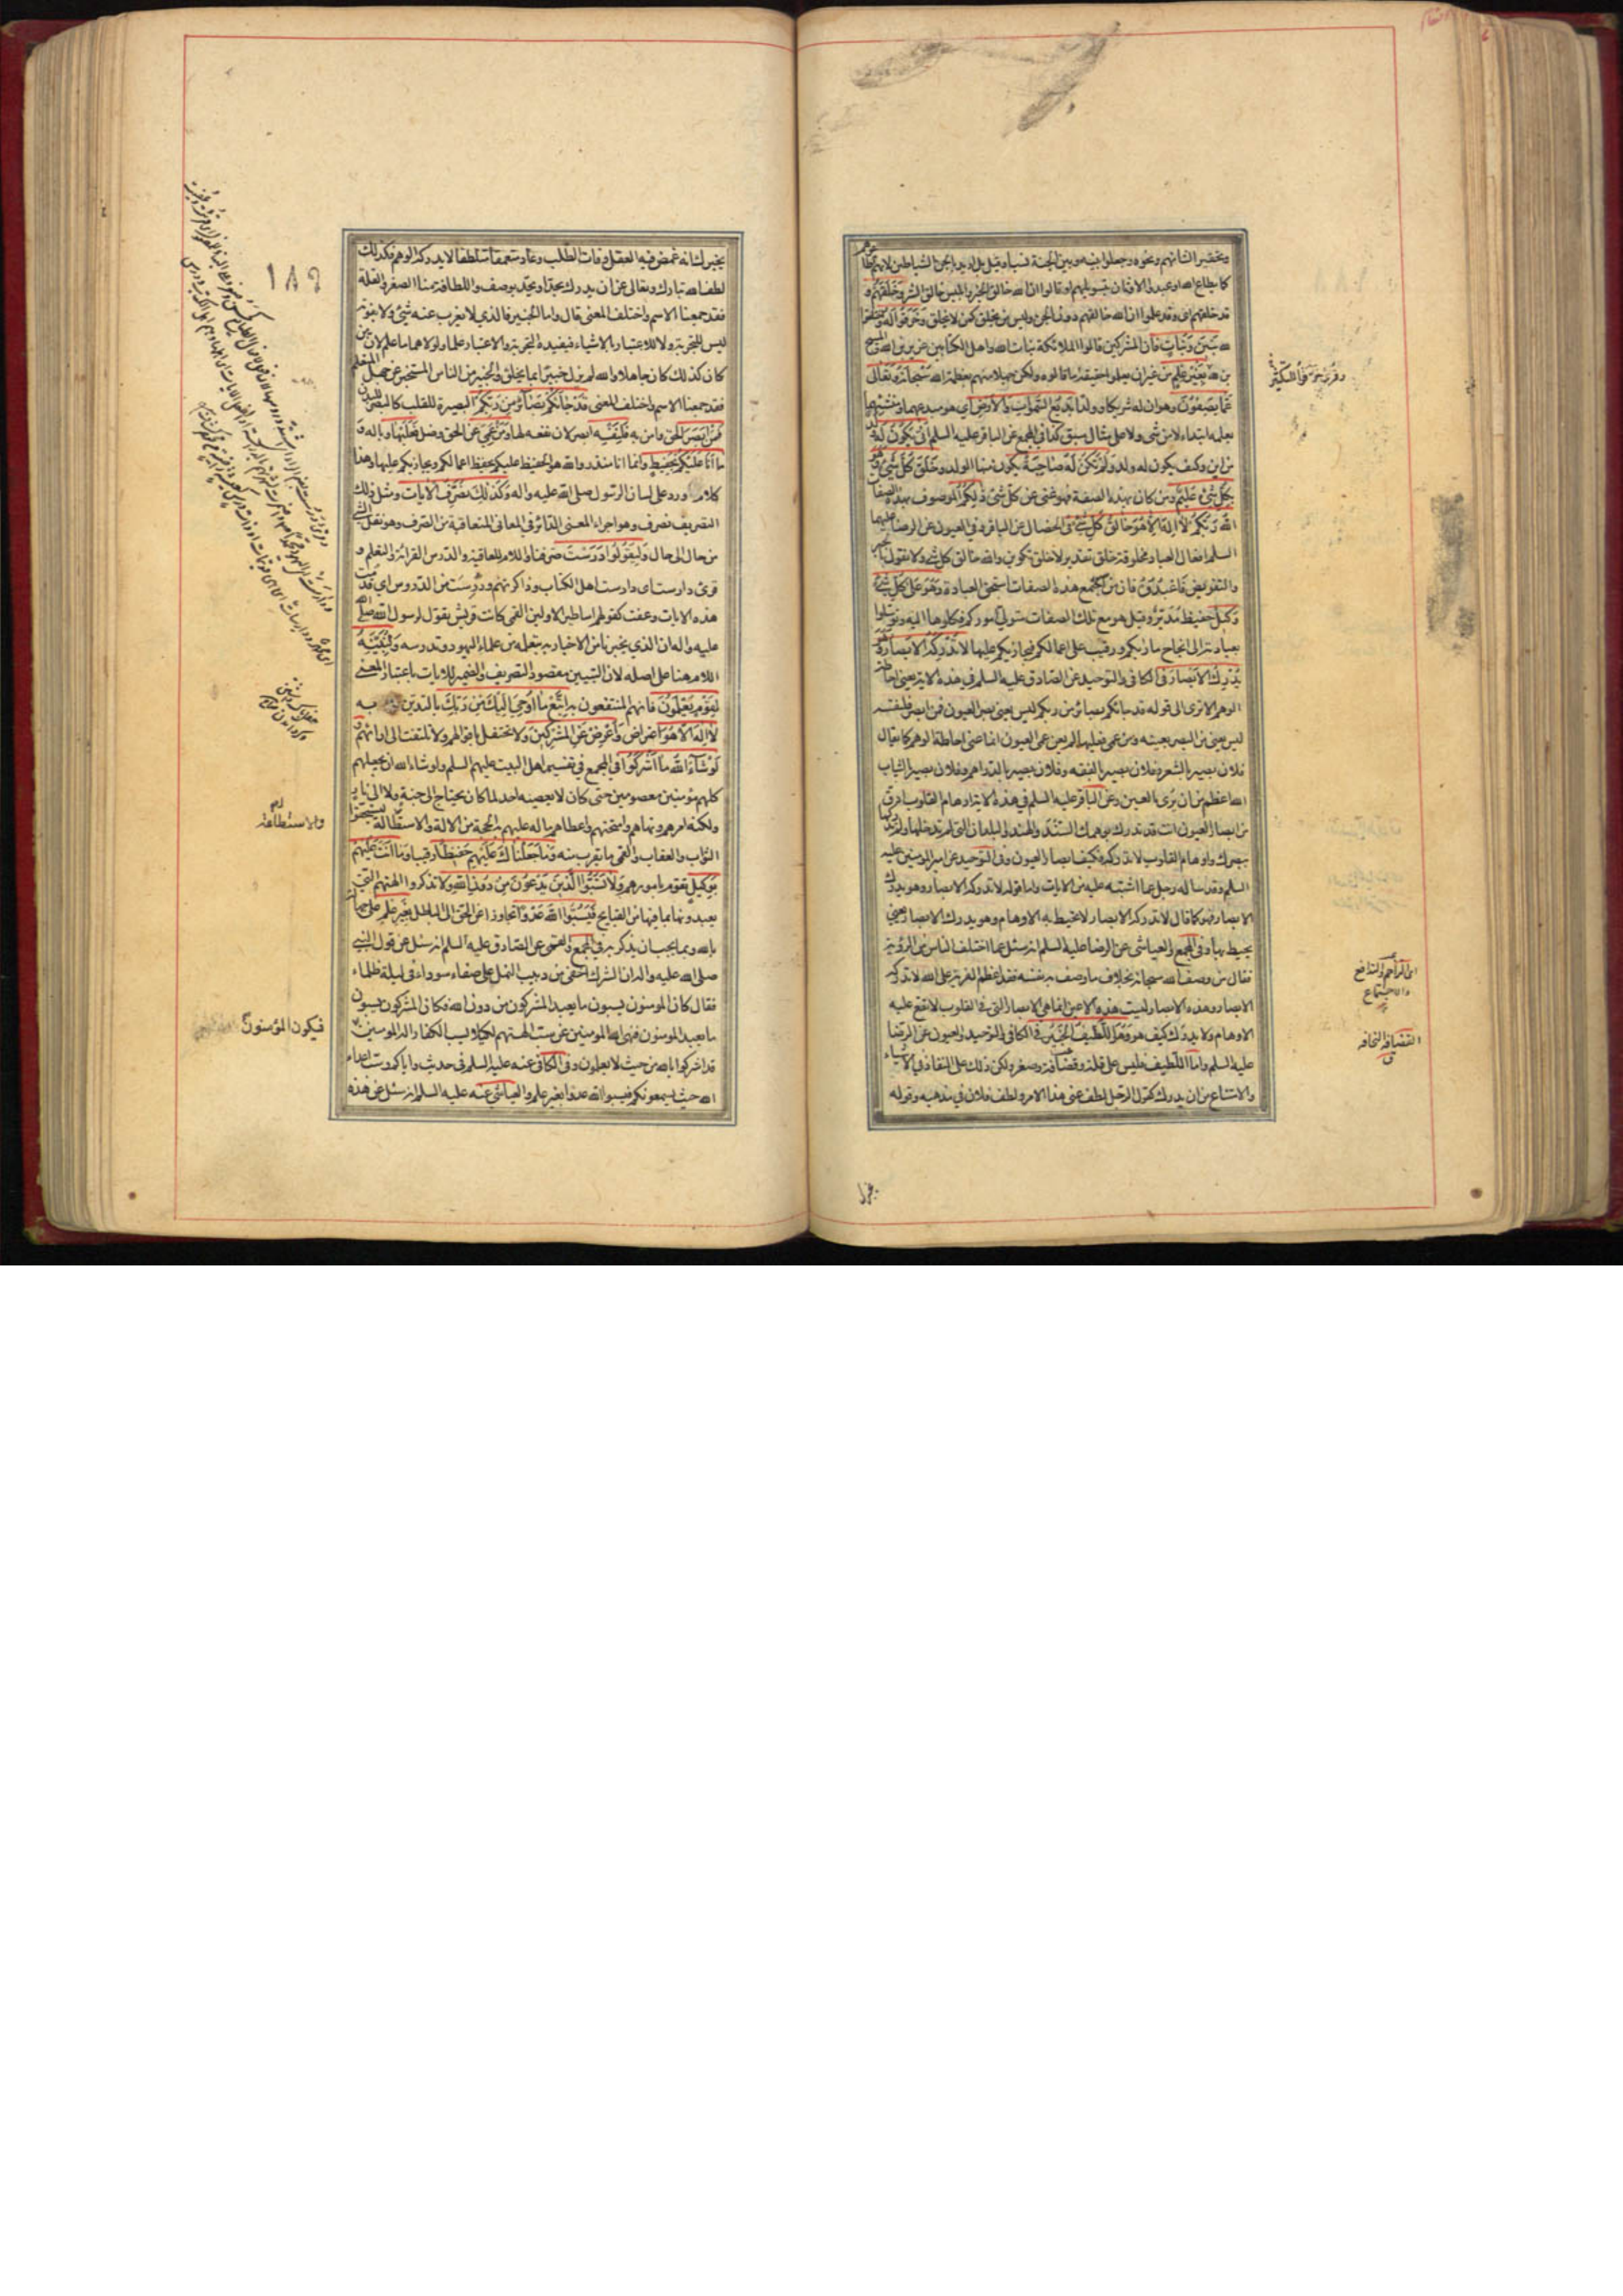 وتحقيرا لشانهم ونحوه وجعلوا بينه وبين الجنة نسبا وقيل بل اريد بالجن الشياطين لانهم
كما يطاع الله او عبدوا الاوثان بتسويلهم او قالوا ان الله خالق الخير وابليس خالق الشر وخلقهم و
قد خلقهم اى وقد علموا ان الله خالقهم دون الجن وليس من يخلق كمن لا يخلق وخرقوا له
بنين وبنات فان المشركين قالوا الملائكة بنات الله واهل الكتابين عزير بن الله
بن الله بغير علم من غير ان يعلموا حقيقة ما قالوه ولكن جهلا منهم بعظمة الله سبحانه وتعالى
عما يصفون وهو ان له شريكا وولدا بديع السموات والارض اى هو مبدعهما ومنشئهما
بعلمه ابتداء لا من شى ولا على مثال سبق كذا فى المجمع عن الباقر عليه السلم انى يكون له
من اين وكيف يكون له ولد ولم تكن له صاحبة يكون منها الولد وخلق كل شئ وهو
بكل شئ عليم ومن كان بهذه الصفة فهو غنى عن كل شئ ذلكم الموصوف بهذه الصفات
الله ربكم لا اله الا هو خالق كل شئ فى الخصال عن الباقر وفى العيون عن الرضا عليهما
السلم افعال العباد مخلوقة خلق تقدير لا خلق تكوين والله خالق كل شئ ولا نقول بالجبر
والتفويض فاعبدوه فان من استجمع هذه الصفات استحق العبادة وهو على كل شئ
وكيل حفيظ مدبر وقيل هو مع تلك الصفات متولى اموركم فكلوها اليه وتوسلوا
بعبادته الى انجاح مآربكم ورقيب على اعمالكم فيجازيكم عليها لا تدركه الابصار وهو
يدرك الابصار فى الكافى والتوحيد عن الصادق عليه السلم فى هذه الاية يعنى احاطة
الوهم الا ترى الى قوله قد جائكم بصائر من ربكم ليس يعنى بصر العيون فمن ابصر فلنفسه
ليس يعنى من البصر بعينه ومن عمى فعليها لم يعن عمى العيون انما عنى احاطة الوهم كما يقال
فلان بصير بالشعر وفلان بصير بالفقه وفلان بصير بالدراهم وفلان بصير بالثياب
الله اعظم من ان يرى بالعين وعن الباقر عليه السلم فى هذه الاية اوهام القلوب ادق
من ابصار العيون انت قد تدرك بوهمك السند والهند والبلدان التى لم تدخلها ولم تدركها
ببصرك واوهام القلوب لا تدركه فكيف ابصار العيون وفى التوحيد عن امير المومنين عليه
السلم وقد ساله رجل عما اشتبه عليه من الايات واما قوله لا تدركه الابصار وهو يدرك
الابصار فهو كما قال لا تدركه الابصار لا تحيط به الاوهام وهو يدرك الابصار يعنى
يحيط بها وفى المجمع والعياشى عن الرضا عليه السلم انه سئل عما اختلف الناس من الرؤية
فقال من وصف الله سبحانه بخلاف ما وصف به نفسه فقد اعظم الفرية على الله لا تدركه
الابصار وهذه الابصار ليست هذه الاعين انما هى الابصار التى فى القلوب لا تقع عليه
الاوهام ولا يدرك كيف هو وهو اللطيف الخبير فى الكافى والتوحيد والعيون عن الرضا
عليه السلم واما اللطيف فليس على قلة وقضافة وصغر ولكن ذلك على النفاذ فى الاشياء
والامتناع من ان يدرك كقول الرجل لطف عنى هذا الامر ولطف فلان فى مذهبه وقوله
القضافة النحافة
يخبرك انه غمض فيه العقل وفات الطلب وعاد متعمقا متلطفا لا يدركه الوهم فكذلك
لطف الله تبارك وتعالى عن ان يدرك بحد او يحد بوصف واللطافة منا الصغر والقلة
فقد جمعنا الاسم واختلف المعنى قال واما الخبير فالذى لا يعزب عنه شئ ولا يفوته
ليس للتجربة ولا للاعتبار بالاشياء فيفيده التجربة والاعتبار علما ولولاهما ما علم لان من
كان كذلك كان جاهلا والله لم يزل خبيرا بما يخلق والخبير من الناس المستخبر عن جهل المتعلم
فقد جمعنا الاسم واختلف المعنى قد جائكم بصائر من ربكم البصيرة للقلب كالبصر للبدن
فمن ابصر الحق وامن به فلنفسه ابصر لان نفعه لها ومن عمى عن الحق وضل فعليها وباله و
ما انا عليكم بحفيظ وانما انا منذر والله هو الحفيظ عليكم يحفظ اعمالكم ويجازيكم عليها وهذا
كلام ورد على لسان الرسول صلى الله عليه واله وكذلك نصرف الايات ومثل ذلك
التصريف نصرف وهو اجراء المعنى الدائر فى المعانى المتعاقبة من الصرف وهو نقل الشئ
من حال الى حال وليقولوا درست صرفنا واللام للعاقبة والدرس القرائة والتعلم و
قرئ دارست اى دارست اهل الكتاب وذاكرتهم ودرست من الدروس اى قدمت
هذه الايات وعفت كقولهم اساطير الاولين القمى كانت قريش يقول لرسول الله صلى الله
عليه واله ان الذى يخبرنا من الاخبار به يتعلمه من علماء اليهود وتدرسه ولنبينه
اللام هنا على اصله لان التبيين مقصود التصريف والضمير للايات باعتبار المعنى
لقوم يعلمون فانهم المنتفعون به اتبع ما اوحى اليك من ربك بالتدين به
لا اله الا هو اعتراض واعرض عن المشركين ولا تحتفل باقوالهم ولا تلتفت الى ارائهم و
لو شاء الله ما اشركوا فى المجمع فى تفسير اهل البيت عليهم السلم ولو شاء الله ان يجعلهم
كلهم مؤمنين معصومين حتى كان لا يعصيه احد لما كان يحتاج الى جنة ولا الى نار
ولكنه امرهم ونهاهم وامتحنهم واعطاهم ماله عليهم به الحجة من الالة والاستطالة ليستحقوا
الثواب والعقاب والقمى ما يقرب منه وما جعلناك عليهم حفيظا رقيبا وما انت عليهم
بوكيل تقوم بامورهم ولا تسبوا الذين يدعون من دون الله ولا تذكروا الهتهم التى
يعبدونها بما فيها من القبايح فيسبوا الله عدوا تجاوزا عن الحق الى الباطل بغير علم على جهالة
بالله وبما يجب ان يذكر به فى المجمع والقمى عن الصادق عليه السلم انه سئل عن قول النبى
صلى الله عليه واله ان الشرك اخفى من دبيب النمل على صفاء سوداء فى ليلة ظلماء
فقال كان المومنون يسبون ما يعبد المشركون من دون الله فكان المشركون يسبون
ما يعبد المومنون فنهى الله المومنين عن سب الهتهم لكيلا يسب الكفار اله المومنين
قد اشركوا بالله من حيث لا يعلمون وفى الكافى عنه عليه السلم فى حديث واياكم وسب اعداء
الله حيث يسمعونكم فيسبوا الله عدوا بغير علم والعياشى عنه عليه السلم انه سئل عن هذه
١٨٩
والاستطاعة
فيكون المؤمنون